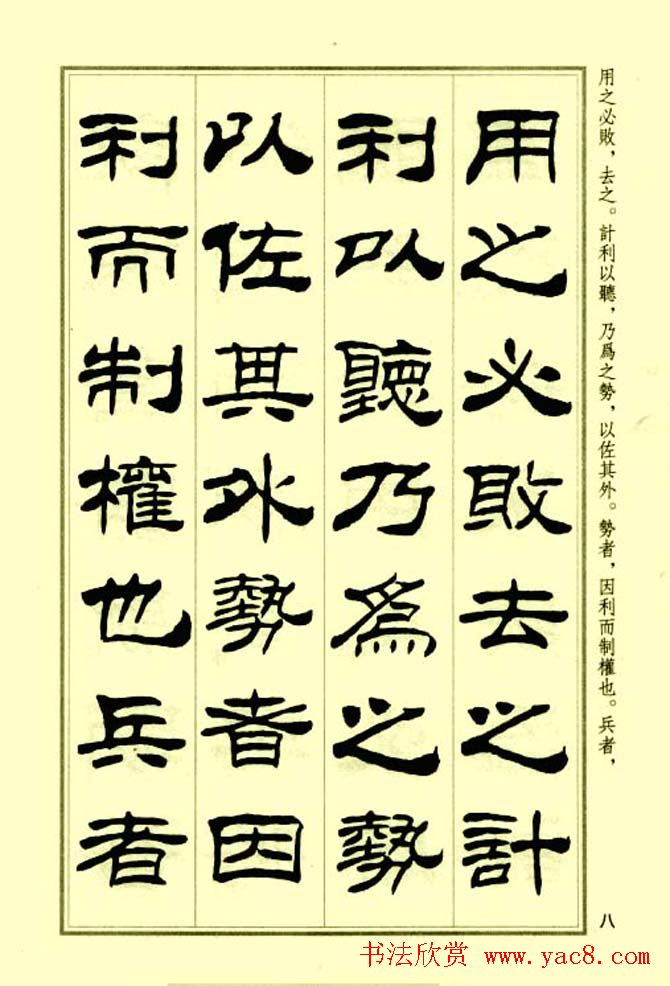 用之必敗，去之。計利以聽，乃爲之勢，以佐其外。勢者，因利而制權也。兵者，
用之必敗去之計
利以聽乃爲之勢
以佐其外勢者因
利而制權也兵者
八
书法欣赏 www.yac8.com